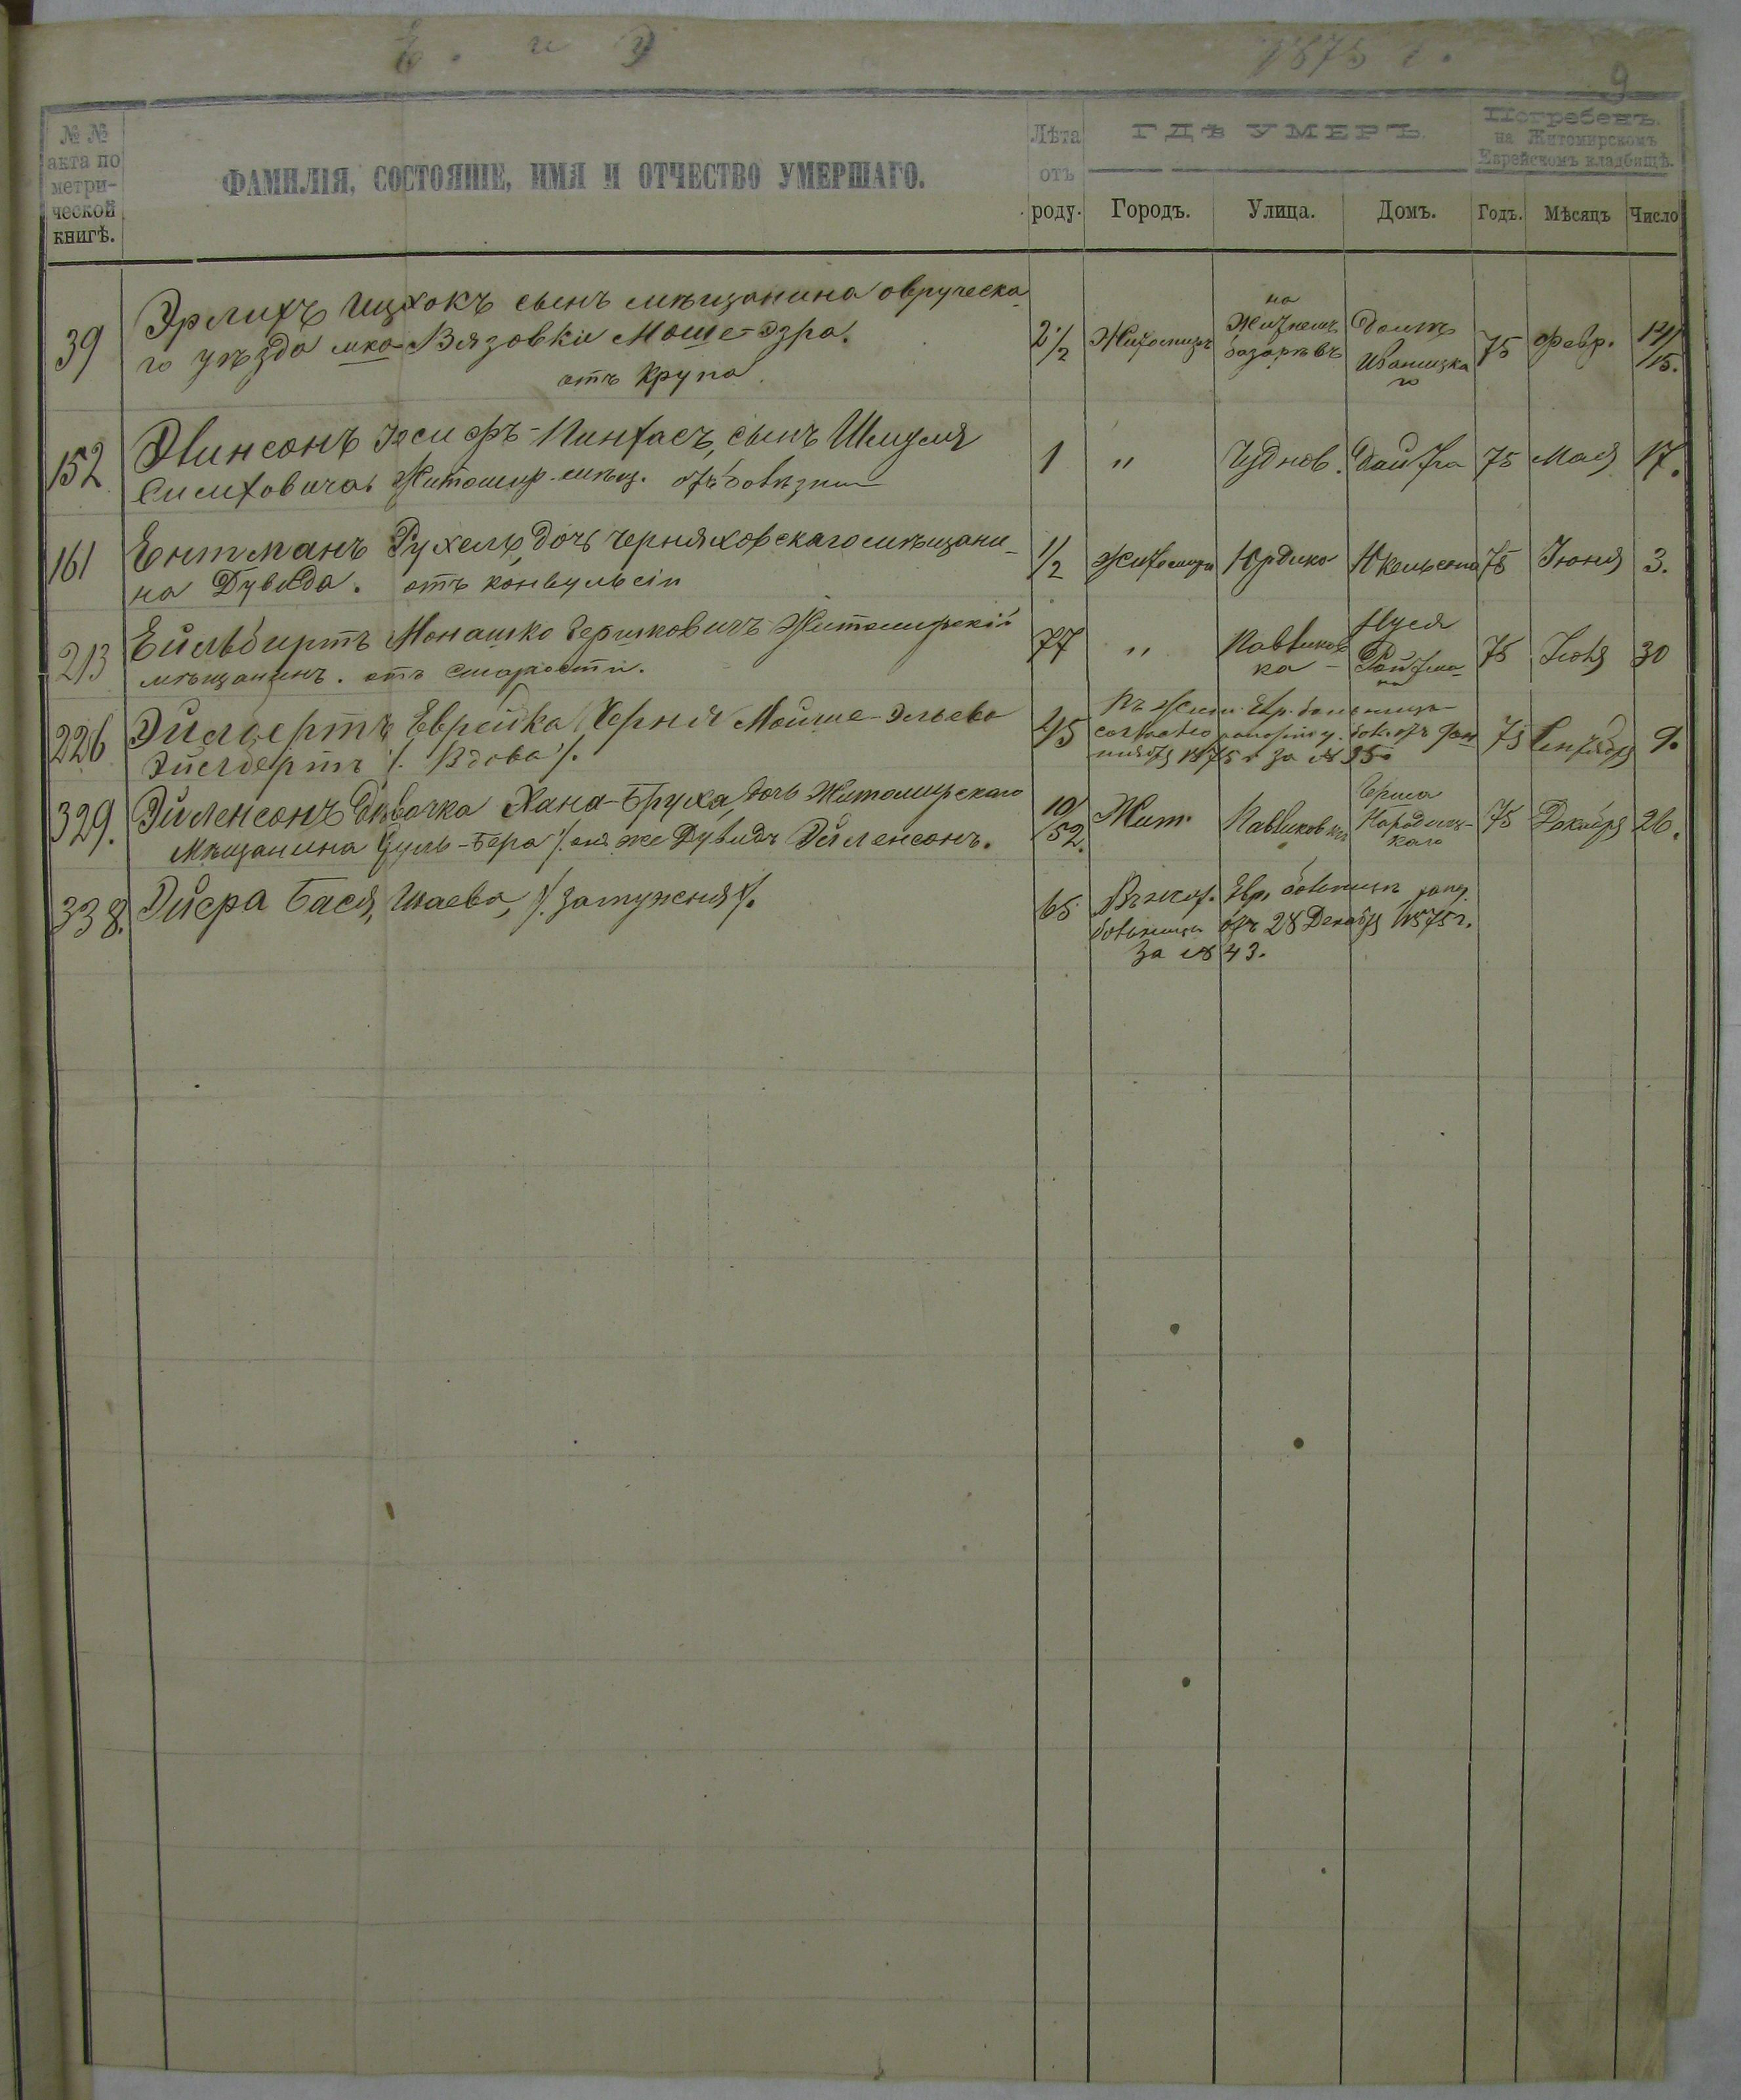 Е. и Э 1875 г.
9
№ № акта по метрической книгѣ.
ФАМИЛІЯ, СОСТОЯНІЕ, ИМЯ И ОТЧЕСТВО УМЕРШАГО.
Лѣта отъ роду.
ГДѢ УМЕРЪ.
Городъ. Улица. Домъ.
Погребенъ.
на Житомирскомъ
Еврейскомъ кладбищѣ.
Годъ. Мѣсяцъ Число
39 Эрлихъ Ицхокъ сынъ мѣщанина овручска-
го уѣзда мка Вязовки Моше-Эзра.
отъ крупа.
2 1/2 Житомиръ на Житнемъ базарѣ въ домѣ Иваницкаго 75 Февр. 14/15.
152 Эинсонъ Іосифъ-Пинхасъ, сынъ Шмуля
Симховича Житомир. мѣщ.
1 " Чуднов. 75 Мая 17.
161 Ентманъ Рухель дочь черняховскаго мѣщани-
на Дувида. отъ конвульсіи
1/2 Житомиръ Юрдика 75 Іюня 3.
213 Ейльбиртъ Монашко Гершковичъ Житомирскій
мѣщанинъ. отъ старости.
77 " Павликов-
ка Нуся 75 Іюля 30
226 Эйльбертъ Еврейка Черня Мойше-Эльева
Эйльбертъ /. Вдова /.
45 Въ Жит. Евр. больницѣ
согласно рапорту
1875 г за № 35. 75 Сентября 9.
329. Эйленсонъ дѣвочка Хана-Бруха, дочь Житомирскаго
Мѣщанина Дуль-Бера /. онъ же Дувидъ Эйленсонъ.
10/52. Жит. Павликовка Герша
Народицкаго 75 Декабря 26.
338. Эйсра Бася, Шаева, /. замужняя /.
65 Въ жит. Евр. больницѣ рапор.
больницы отъ 28 Декабря 1875 г.
За № 43.